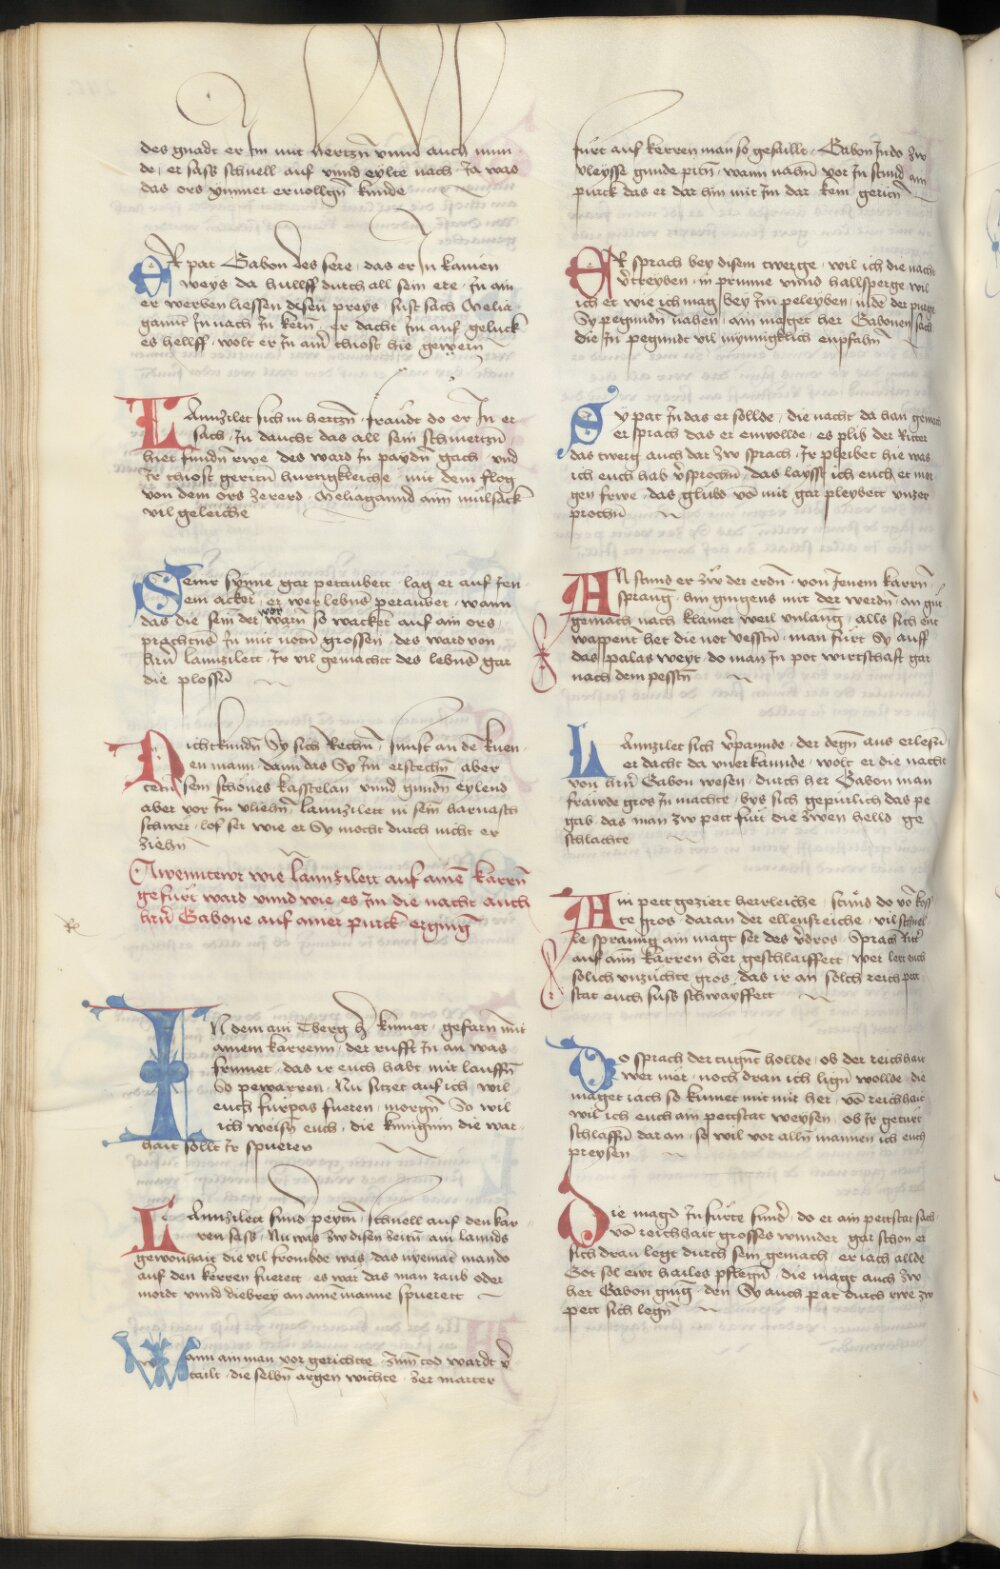 des gnadt er Im mit hertzn̄ vnnd auch mun
de · er sass schnell auf vnnd eylte nach · Ja was
das ors ymmer ervollgn̄ kunde
ER pat Gabon des sere · das er In kainen
weys da hullff durch all sein ere · In ain
er werben liessen disen preys · sust sach Melia
gannt In nach In kern̄ · er dacht Im auf geluck
es hellff · wolt er In ain̄ thiost hie gewern̄
LAnnzilet sich in hertzn̄ · fraudt do er In er
sach · In daucht das all sein schmertzn̄
hiet fundn̄ rwe des ward In paydn̄ gach · vnd
Ir thiost geritn̄ hurtigkleiche · mit dem flog
von dem ors zererd · Meliagannd ain mulsack
vil geleiche
Seinr synne gar petaubett · lag er auf Jen
em acker · er wer lebns̄ peraubet · wann
das die sein der warn̄ so wacker auf ain ors ·
prachtens̄ In mit notn̄ grossen · des ward von
hrn̄ lannzilett · Ir vil gemacht des lebns̄ gar
die plossn̄
Nicht kundn̄ Sy sich Rechn̄ · sunst an dē kuen
en mann · dann das Sy Im erstechn̄ · aber
tetn̄ sein schönes kasstelan · vnnd gundn̄ eylend
aber vor Im vliehn̄ · lannzilett in sein̄ harnasch
schwer · lof ser wie er Sy mocht durch nicht er
ziehn̄
Awenntewr wie lannzilett auf ainē karrn̄
gefurt ward vnnd wie es Im die nacht auch
hrn̄ Gabone auf ainer purck ergieng
IN dem ain Tberg h kumet · gefarn mit
ainem karrenn · der rufft In an was
frumet · das ir euch habt mit lauffn̄
So pewarren · Nu sitzet auf ich wil
euch furpas fueren · morgn̄ So wil
ich weisn̄ euch · die kuniginn die war
hait sollt Ir spueren
LAnnzilett sund peytn̄ · schnell auf den kar
ren sass · Nu was zw disen zeitn̄ · ain lannds
gewonhait die vil frombde was · das nyemat mando
auf den kerren fuerett · es war das man raub oder
mordt vnnd dieberey an ainē manne spuerett
Wann ain man vor gerichtte · zum̄ tod wardt v̄
tailt · die selbn̄ argen wichte · zer marter
furt auf kerren man so gestallt · Gabon Indo zw
vleysse gunde pitn̄ · wann nahn̄ vor In stund ain
purck das er dar hin mit Im dar kem geritn̄
ER sprach bey disem twerge · wil ich die nacht
v̄treyben · in prunne vnnd hallsperge wil
ich et wie ich mag bey Im peleyben · in dē der purge
Sy pegundn̄ nahen · ain maget her Gabonen sach
die In pegundt vil mynnigklich enpfahn̄
Sy pat In das er sollde · die nacht da han gemach
er sprach das er enwollde · es plib der Ritter
das twerg auch dar zw sprach · Ir pleibet hie was
ich euch hab v̄sprochn̄ · das laysst ich euch et mor
gen frwe · das glubs vō mir gar pleybett vnzer
prochn̄
AN stund er zw der erdn̄ · von Jenem karrn̄
sprang · hin giengens mit der werdn̄ · an gut
gemach nach klainer weil vnlang · alls sich ent
wappent het die not vesstn̄ · man furt Sy auff
das palas weyt · do man In pot wirtschaft gar
nach dem pesstn̄
LAnnzilet sich v̄pannde · der degn̄ aus erlesn̄
er dacht da vnerkannde · wolt er die nacht
von hrn̄ Gabon wesen · durch her Gabon man
frawde gros In machte · bys sich gepurlich das pe
gab · das man zw pett furt die zwen helld ge
schlachte
Ain pett geziert herrleiche · stund do vō koss
te gros · daran der ellensreiche · vil schnel
le sprannng ain magt ser des v̄dros · Sprach Ritt̄
auf ain̄ karren her geschlaiffett · wer lert euch
solich vnzuchte gros · das ir an solch reich pett
stat euch suss schwayffett
Do sprach der tugnt hollde · ob der reichhait
wer mer · noch dran ich lign̄ wollde · die
maget iach so kumet mit mir her · vō reichhait
wil ich euch ain pettstat weysen · ob Ir getuert
schlaffn̄ dar an · so wil vor alln̄ mannen ich euch
preysen
Die magd In furte sund̄ · do er ain pettstat sach ·
vō reichhait grosses wunder · gar schon er
sich dran legt durch sein gemach · er iach allde
Got sol ewr hailes pflegn̄ · die magt auch zw
her Gabon gieng · den Sy auch pat durch rwe zw
pett sich legn̄